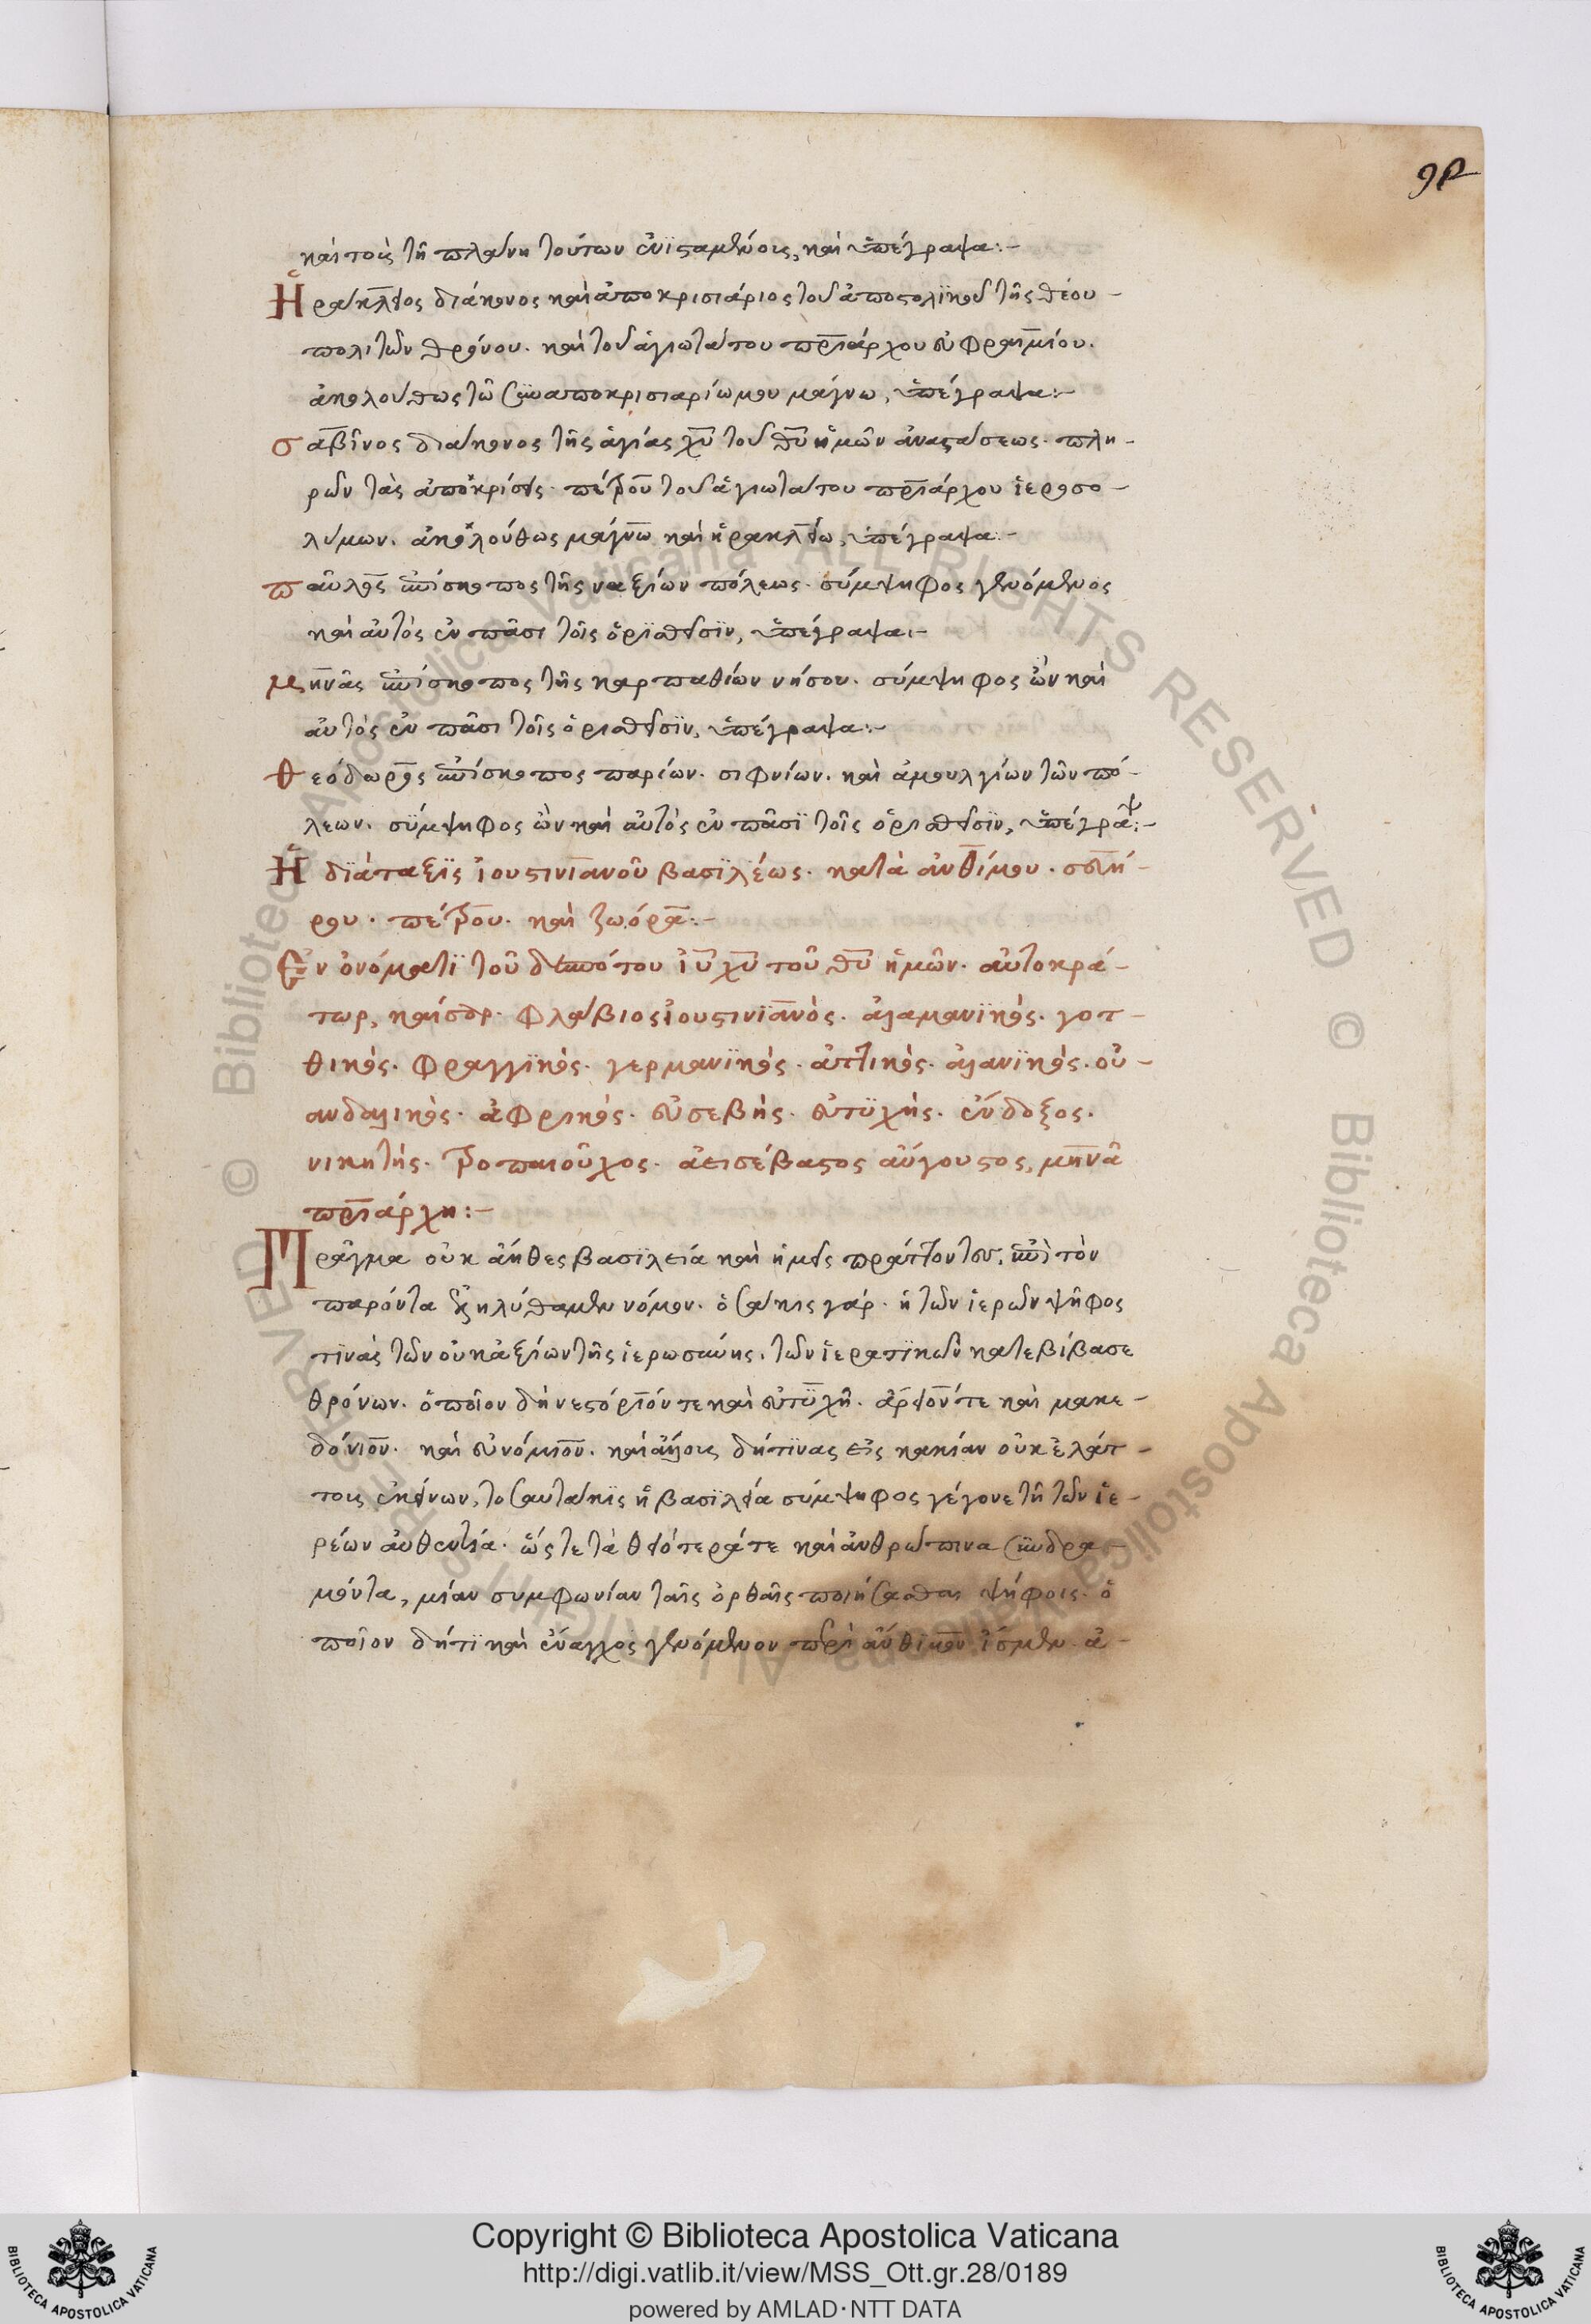 92
καὶ τοῖς τῇ πλάνῃ τούτων ἐνισταμένοις, καὶ ὑπέγραψα:–
Ἡράκλειος διάκονος καὶ ἀποκρισιάριος τοῦ ἀποστολικοῦ τῆς θεου–
πολιτῶν θρόνου. καὶ τοῦ ἁγιωτάτου πρ̅ιάρχου εὐφραιμίου.
ἀκολούθως τῶ συναποκρισιαρίω μου μάγνω, ὑπέγραψα:–
σαβῖνος διάκονος τῆς ἁγίας χ̅υ̅ τοῦ θ̅υ̅ ἡμῶν ἀναστάσεως. πλη–
ρῶν τὰς ἀποκρίσεις πέτρου τοῦ ἁγιωτάτου πρ̅ιάρχου ἱεροσο–
λύμων. ἀκολούθως μάγνω καὶ ἡρακλείω, ὑπέγραψα:–
παῦλος ἐπίσκοπος τῆς ναξίων πόλεως. σύμψηφος γενόμενος
καὶ αὐτὸς ἐν πᾶσι τοῖς ὁρισθεῖσιν, ὑπέγραψα:–
μηνᾶς ἐπίσκοπος τῆς καρπαθίων νήσου. σύμψηφος ὢν καὶ
αὐτὸς ἐν πᾶσι τοῖς ὁρισθεῖσιν, ὑπέγραψα:–
θεόδωρος ἐπίσκοπος παρίων. σιφνίων. καὶ ἀμουλγίων τῶν πό–
λεων. σύμψηφος ὢν καὶ αὐτὸς ἐν πᾶσι τοῖς ὁρισθεῖσιν, ὑπέγραψ:–
Ἡ διάταξις ἰουστινιανοῦ βασιλέως. κατὰ ἀνθίμου. σευή–
ρου. πέτρου. καὶ ζωόρα:–
Ἐν ὀνόματι τοῦ δεσπότου ἰ̅υ̅ χ̅υ̅ τοῦ θ̅υ̅ ἡμῶν. αὐτοκρά–
τωρ, καῖσαρ. φλάβιος ἰουστινιανὸς. ἀλαμανικός. γοτ–
θικός. φραγγικός. γερμανικός. ἀττικός. ἀλανικός. οὐ–
ανδαλικός. ἀφρικός. εὐσεβής. εὐτυχής. ἔνδοξος.
νικητής. τροπαιοῦχος. ἀεισέβαστος αὔγουστος, μηνᾶ
πρ̅ιάρχη:–
Πρᾶγμα οὐκ ἄηθες βασιλεία καὶ ἡμεῖς πράττοντες, ἐπὶ τὸν
παρόντα ἐξηλύθαμεν νόμον. ὁσάκις γάρ. ἡ τῶν ἱερῶν ψῆφος
τινὰς τῶν οὐκ ἀξίων τῆς ἱερωσύνης. τῶν ἱερατικῶν κατεβίβασε
θρόνων. ὁποῖον δὴ νεστόριόν τε καὶ εὐτυχῆ. ἄρειόν τε καὶ μακε–
δόνιον. καὶ εὐνόμιον. καὶ ἄλλους δή τινας εἰς κακίαν οὐκ ἐλάτ–
τοις ἐκείνων, τοσαυτάκις ἡ βασιλεία σύμψηφος γέγονε τῇ τῶν ἱε–
ρέων αὐθεντία. ὥστε τὰ θειότερά τε καὶ ἀνθρώπινα συνδρα–
μόντα, μίαν συμφωνίαν ταῖς ὀρθαῖς ποιήσασθαι ψήφοις. ὁ
ποῖον δή τι καὶ ἔναγχος γενόμενον περὶ ἄνθιμον ἴσμεν. ἀ–
Copyright © Biblioteca Apostolica Vaticana
http://digi.vatlib.it/view/MSS_Ott.gr.28/0189
powered by AMLAD·NTT DATA